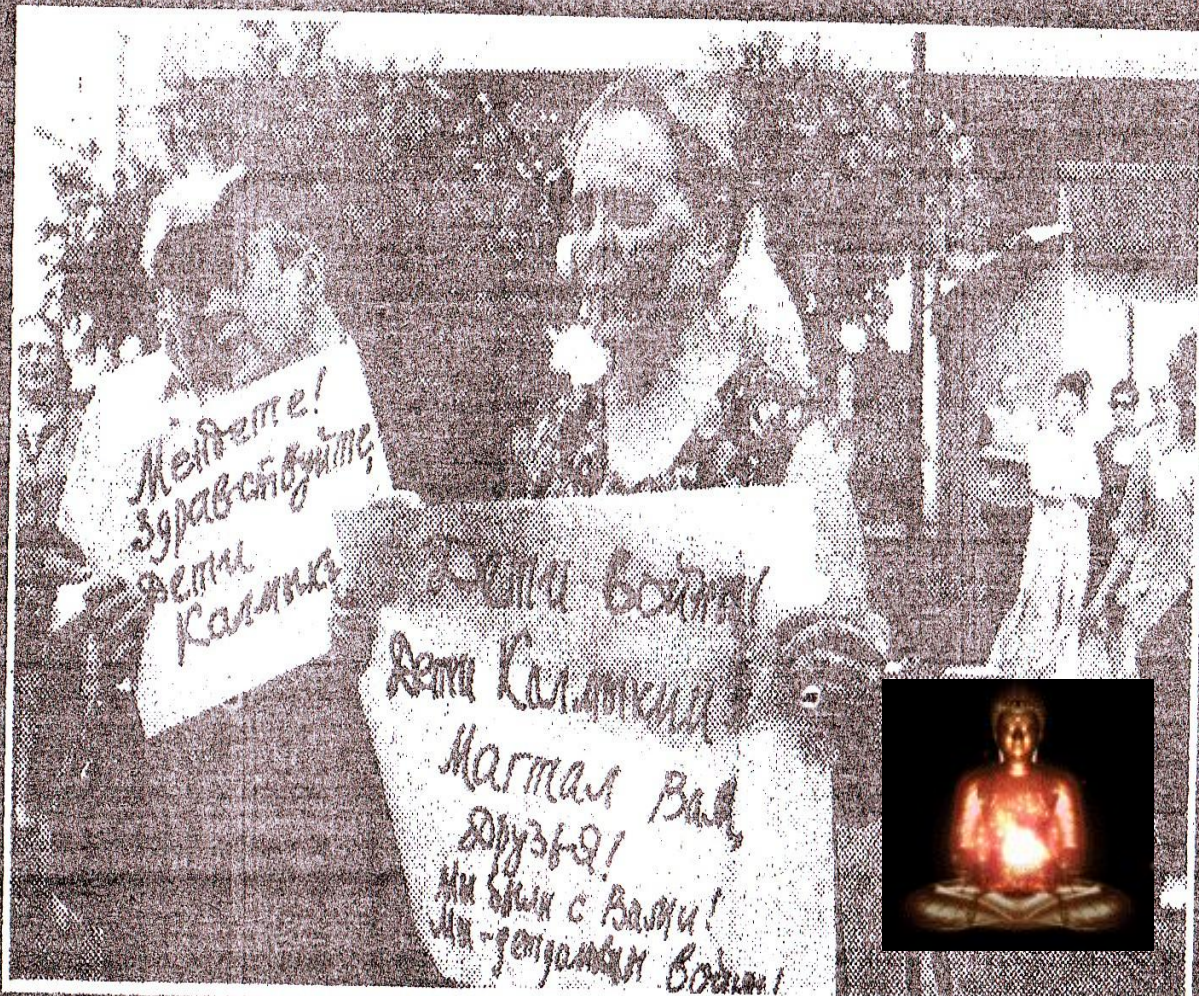 Мендвте!
Здравствуйте,
Дети
Калмык
Дети войны!
Дети Калмыкии!
Магтал Вам,
Друзья!
Мы были с Вами!
Мы - детдомовцы войны!